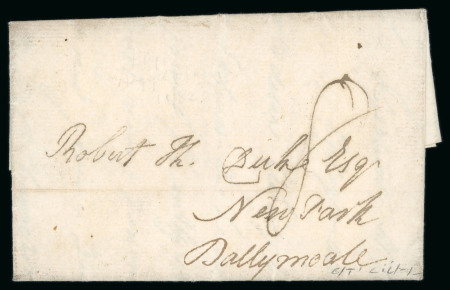 Robert Th. Duke Esqr
8
New Park
Ballymoate